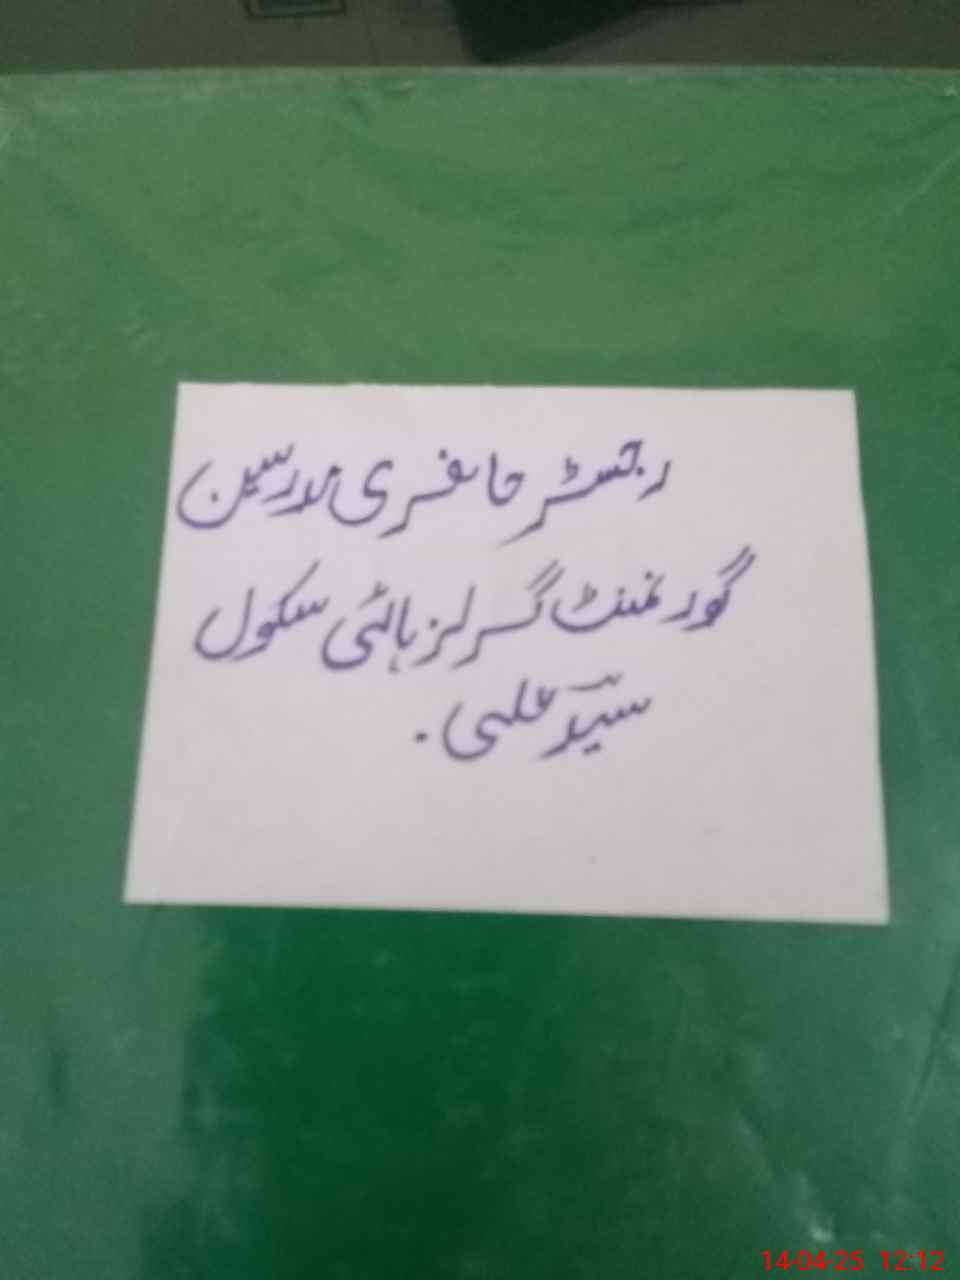 رجسٹر حاضری مدرسین
گورنمنٹ گرلز ہائی سکول
سیّد علی۔
14-04-25 12:12